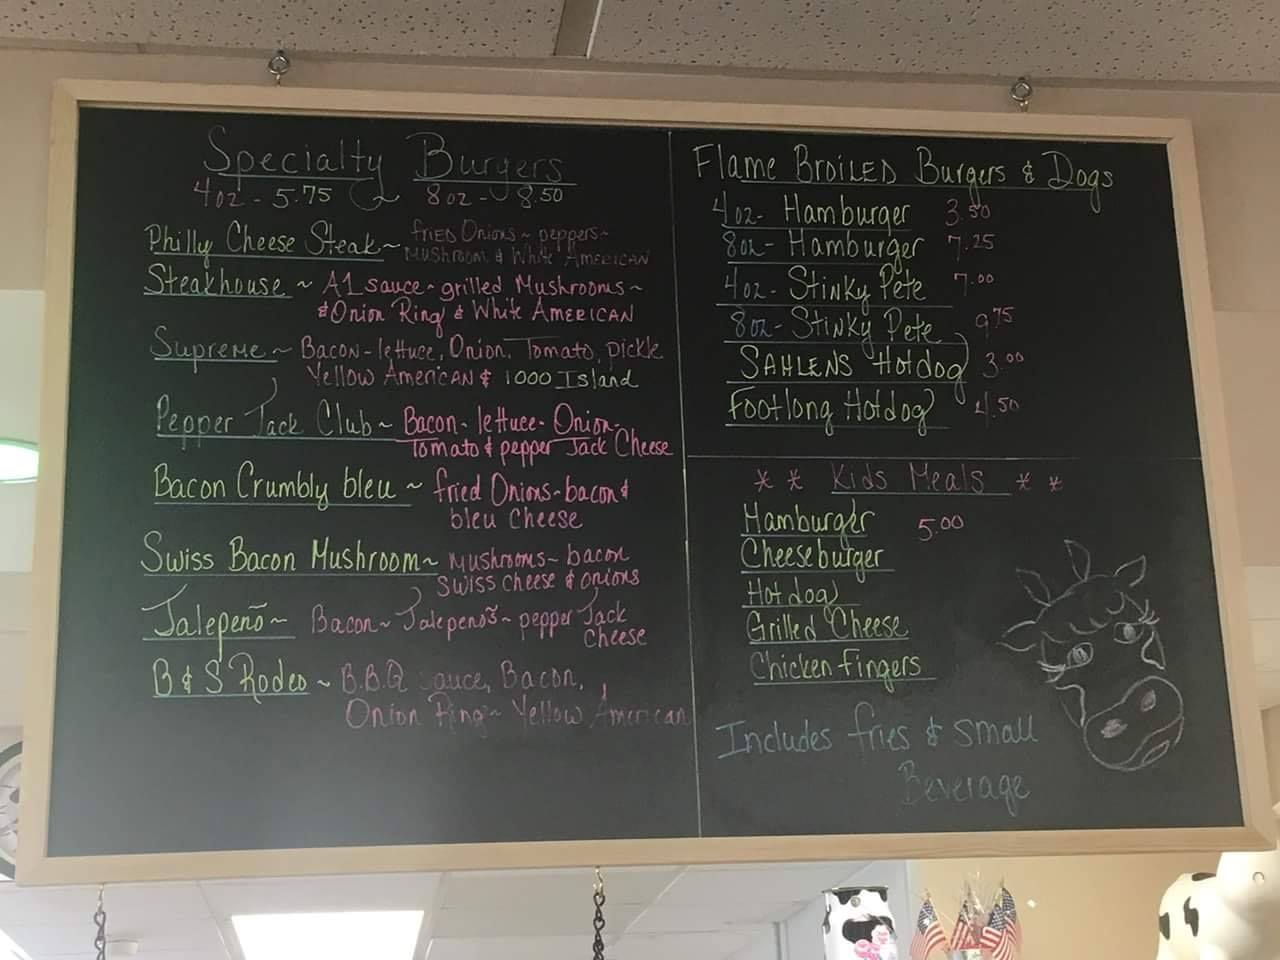 Specialty Burgers
4oz - 5.75 ~ 8oz - 8.50
Philly Cheese Steak ~ fRIED Onions ~ peppers ~
MUSHROOM & White AMERICAN
Steakhouse ~ A1 sauce ~ grilled Mushrooms ~
& Onion Ring & White AMERICAN
Supreme ~ Bacon - lettuce, Onion, Tomato, pickle
Yellow American & 1000 Island
Pepper Jack Club ~ Bacon - lettuce - Onion -
Tomato & pepper Jack Cheese
Bacon Crumbly bleu ~ fried Onions - bacon &
bleu Cheese
Swiss Bacon Mushroom ~ Mushrooms ~ bacon
Swiss cheese & onions
Jalepeño ~ Bacon ~ Jalepeños ~ pepper Jack
Cheese
B & S Rodeo ~ B.B.Q sauce, Bacon,
Onion Ring ~ Yellow American
Flame BROILED Burgers & Dogs
4oz - Hamburger 3.50
8oz - Hamburger 7.25
4oz - Stinky Pete 7.00
8oz - Stinky Pete 9.75
SAHLENS Hotdog 3.00
Footlong Hotdog 4.50
* * Kids Meals * *
Hamburger 5.00
Cheeseburger
Hotdog
Grilled Cheese
Chicken Fingers
Includes fries & small
Beverage